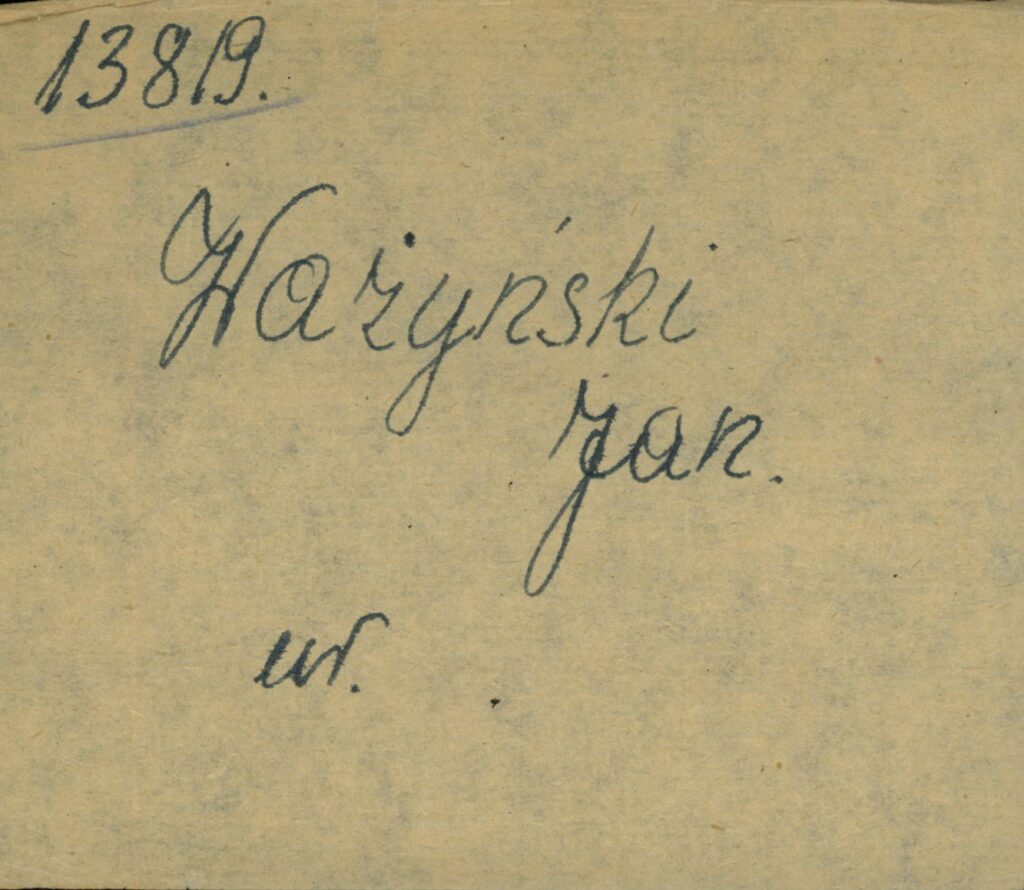 13819.
Ważyński
Jan.
ur. .